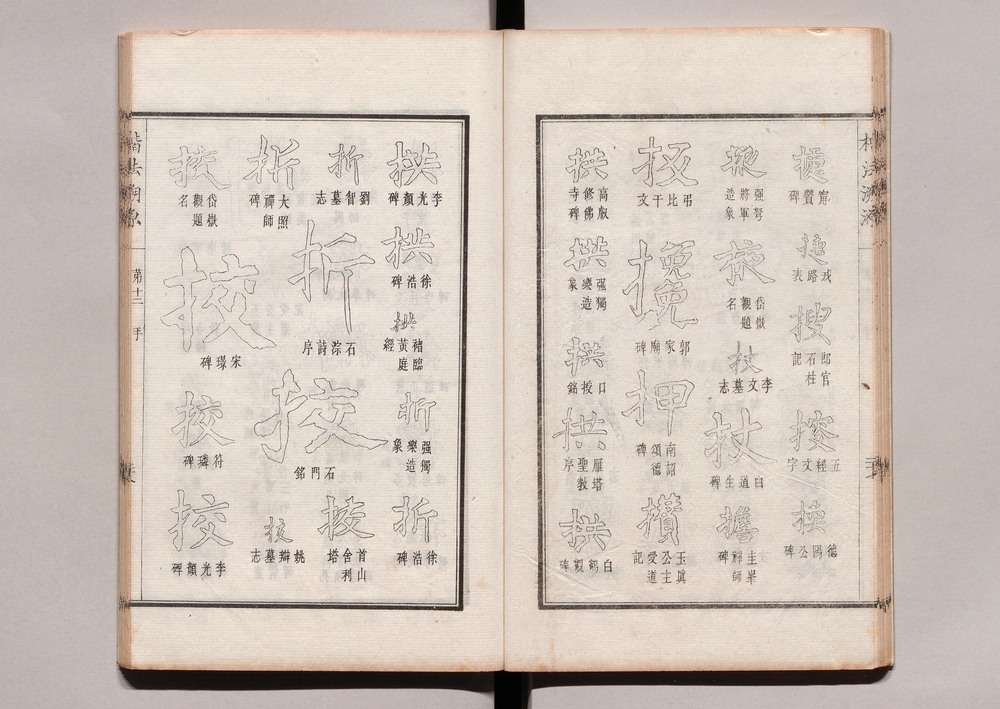 甯贊碑
捷
戎路表
搜
郎官石柱記
五經文字
德陽公碑
掖
强弩將軍造象
掖
岱嶽觀題名
杖
李文墓志
杖
白道生碑
擔
圭峯禪師碑
扱
弔比干文
郭家廟碑
押
南詔德頌碑
攢
玉眞公主受道記
拱
高叡修佛寺碑
拱
强獨樂造象
拱
口授銘
拱
雁塔聖教序
拱
白鶴觀碑
拱
李光顏碑
拱
徐浩碑
拱
褚臨黃庭經
折
强獨樂造象
折
徐浩碑
折
劉智墓志
折
石淙詩序
挍
石門銘
首山舍利塔
折
大照禪師碑
挍
姚辯墓志
挍
岱嶽觀題名
挍
宋璟碑
挍
符璘碑
挍
李光顏碑
楷法溯源 第十二 手